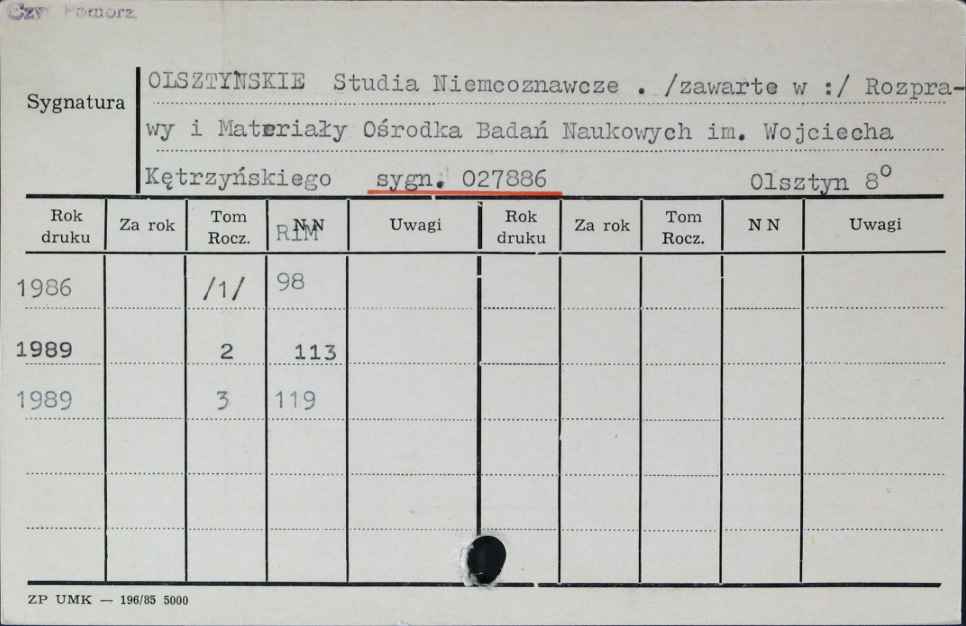 Czyt Pomorz
Sygnatura
OLSZTYŃSKIE Studia Niemcoznawcze . /zawarte w :/ Rozpra-
wy i Materiały Ośrodka Badań Naukowych im. Wojciecha
Kętrzyńskiego sygn. 027886 Olsztyn 8°
Rok druku Za rok Tom Rocz. NN RIM Uwagi Rok druku Za rok Tom Rocz. N N Uwagi
1986 /1/ 98
1989 2 113
1989 3 119
ZP UMK — 196/85 5000